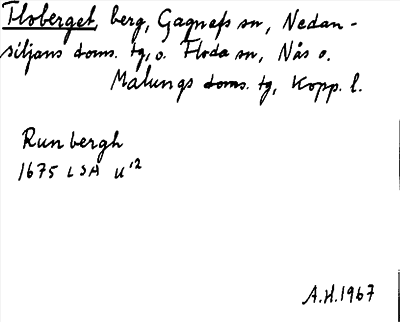 Floberget, berg, Gagnefs sn, Nedan-
siljans doms. tg, o. Floda sn, Nås o.
Malungs doms. tg, Kopp. l.
Runbergh
1675 LSA U12
A.H. 1967